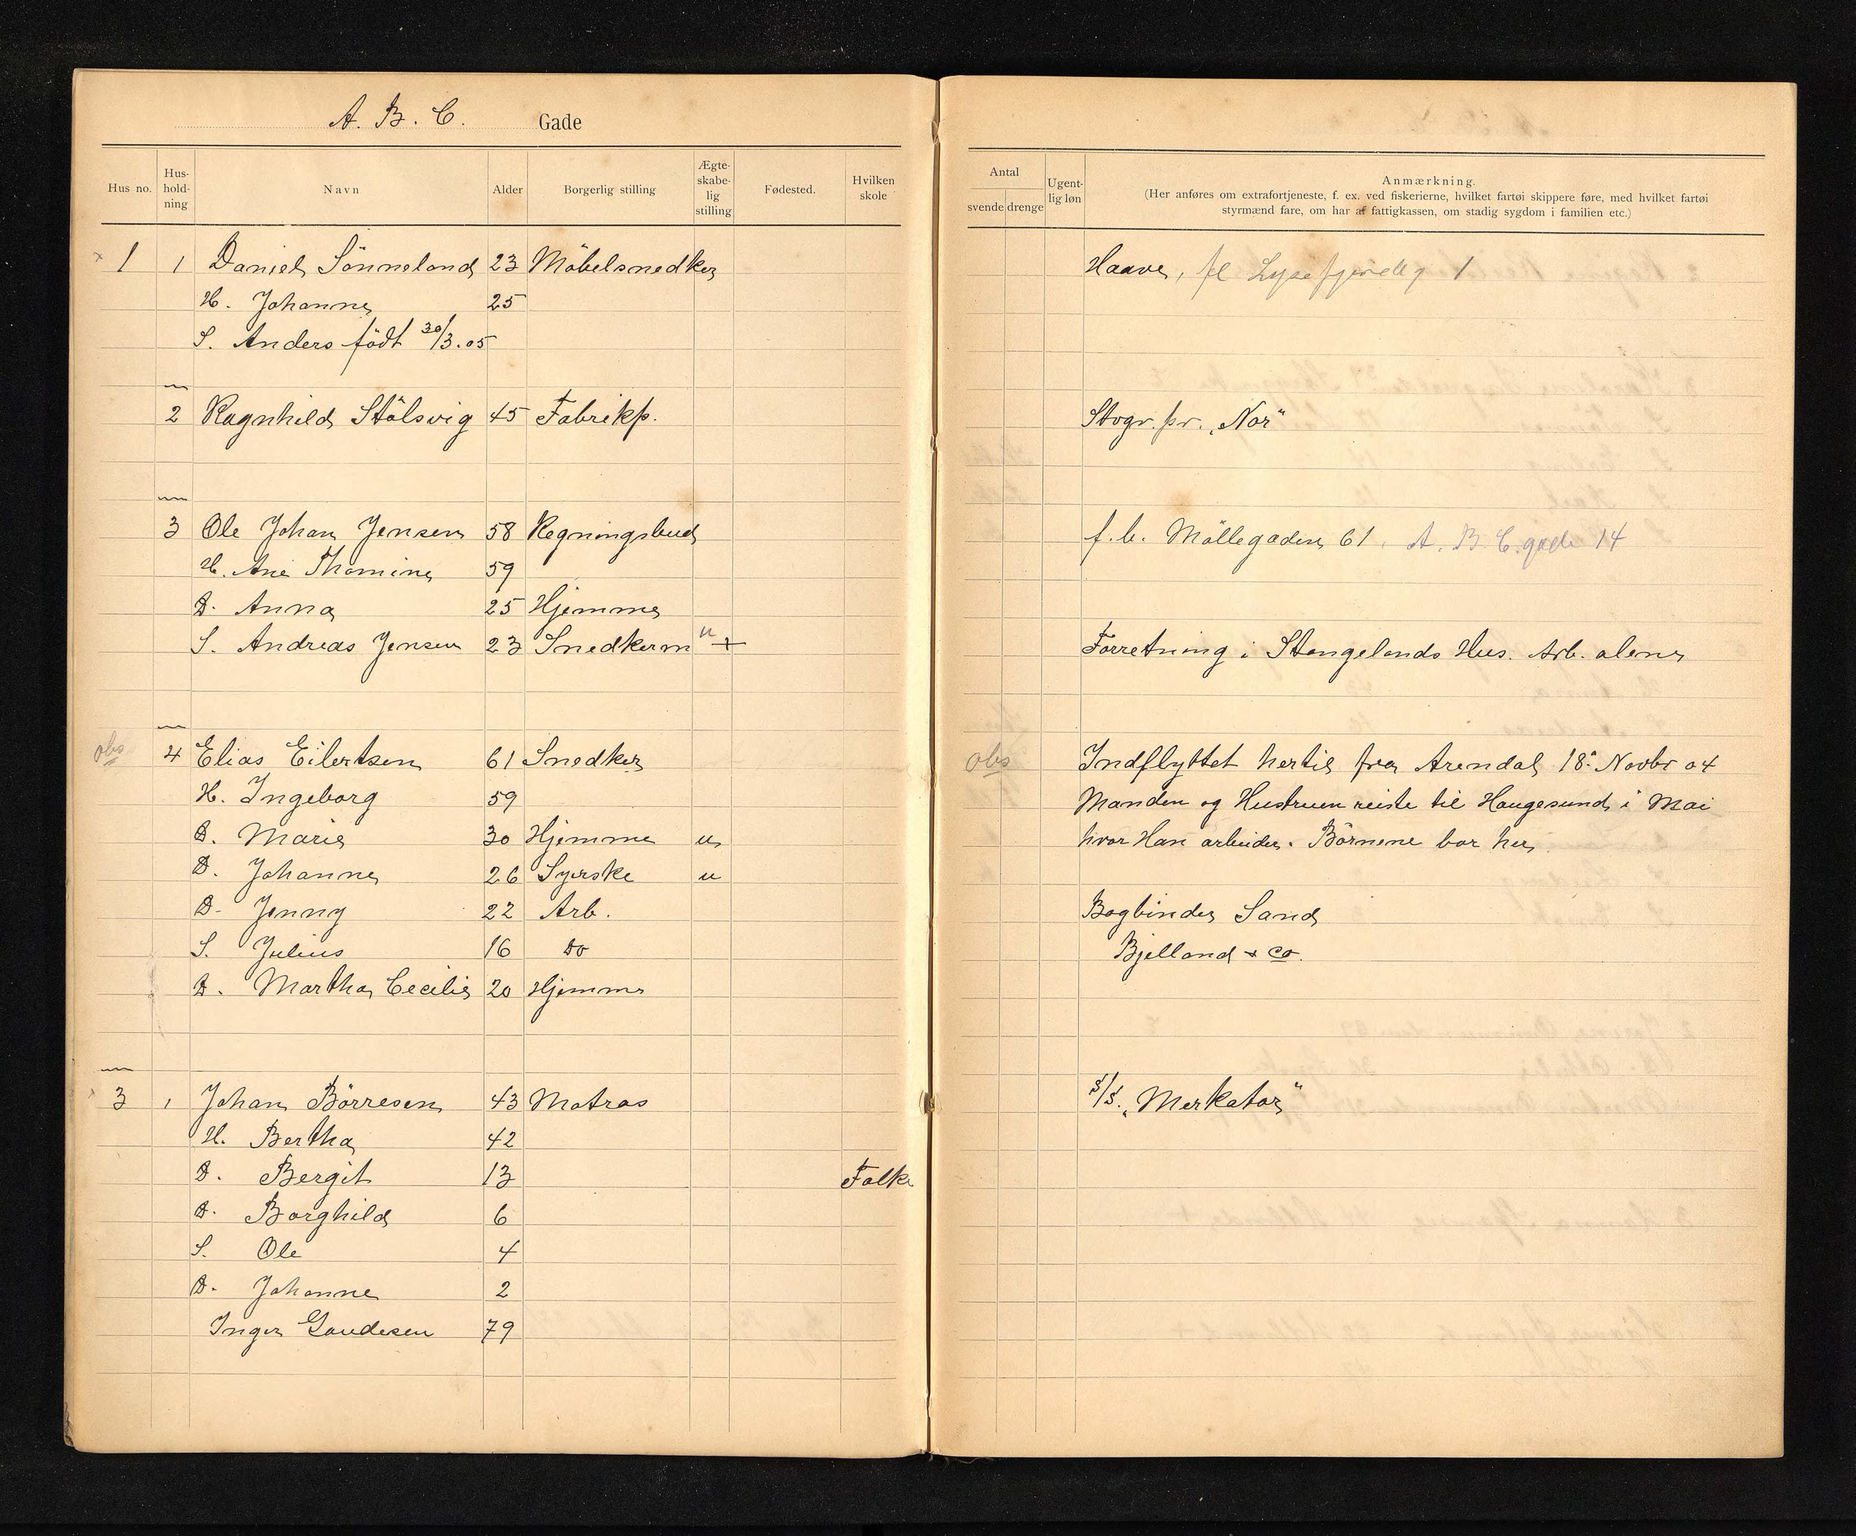 A. B. C. Gade
Hus no. Hus-hold-ning Navn Alder Borgerlig stilling Ægte-skabe-lig stilling Fødested. Hvilken skole
Antal svende drenge Ugent-lig løn Anmærkning.
(Her anføres om extrafortjeneste, f. ex. ved fiskerierne, hvilket fartøi skippere føre, med hvilket fartøi
styrmænd fare, om har af fattigkassen, om stadig sygdom i familien etc.)
1 1 Daniel Sönneland 23 Möbelsnedker Haaver, fl Lysefjordg 1
H. Johanne 25
S. Anders födt 30/3.05
2 Ragnhild Stölsvig 45 Fabrikp. Stvgr. pr. „Nor"
3 Ole Johan Jensen 58 Regningsbud f. b. Möllegaden 61, A. B. C. gade 14
H. Ane Thomine 59
D. Anna 25 Hjemme
S. Andreas Jensen 23 Snedkerm u + Forretning i Stangelands Hus. Arb. alene
obs 4 Elias Eilertsen 61 Snedker obs Indflyttet hertil fra Arendal 18. Novbr 04
H. Ingeborg 59 Manden og Hustruen reiste til Haugesund i Mai
D. Marie 30 Hjemme u hvor Han arbeider. Börnene bor her.
D. Johanne 26 Syerske u
D. Jenny 22 Arb. Bogbinder Sand
S. Julius 16 Do Bjelland & Co.
D. Martha Cecilie 20 Hjemme
3 1 Johan Börresen 43 Matros S/S. „Merkator"
H. Bertha 42
D. Bergit 13 Folke
D. Borghild 6
S. Ole 4
D. Johanne 2
Inger Gaudesen 79